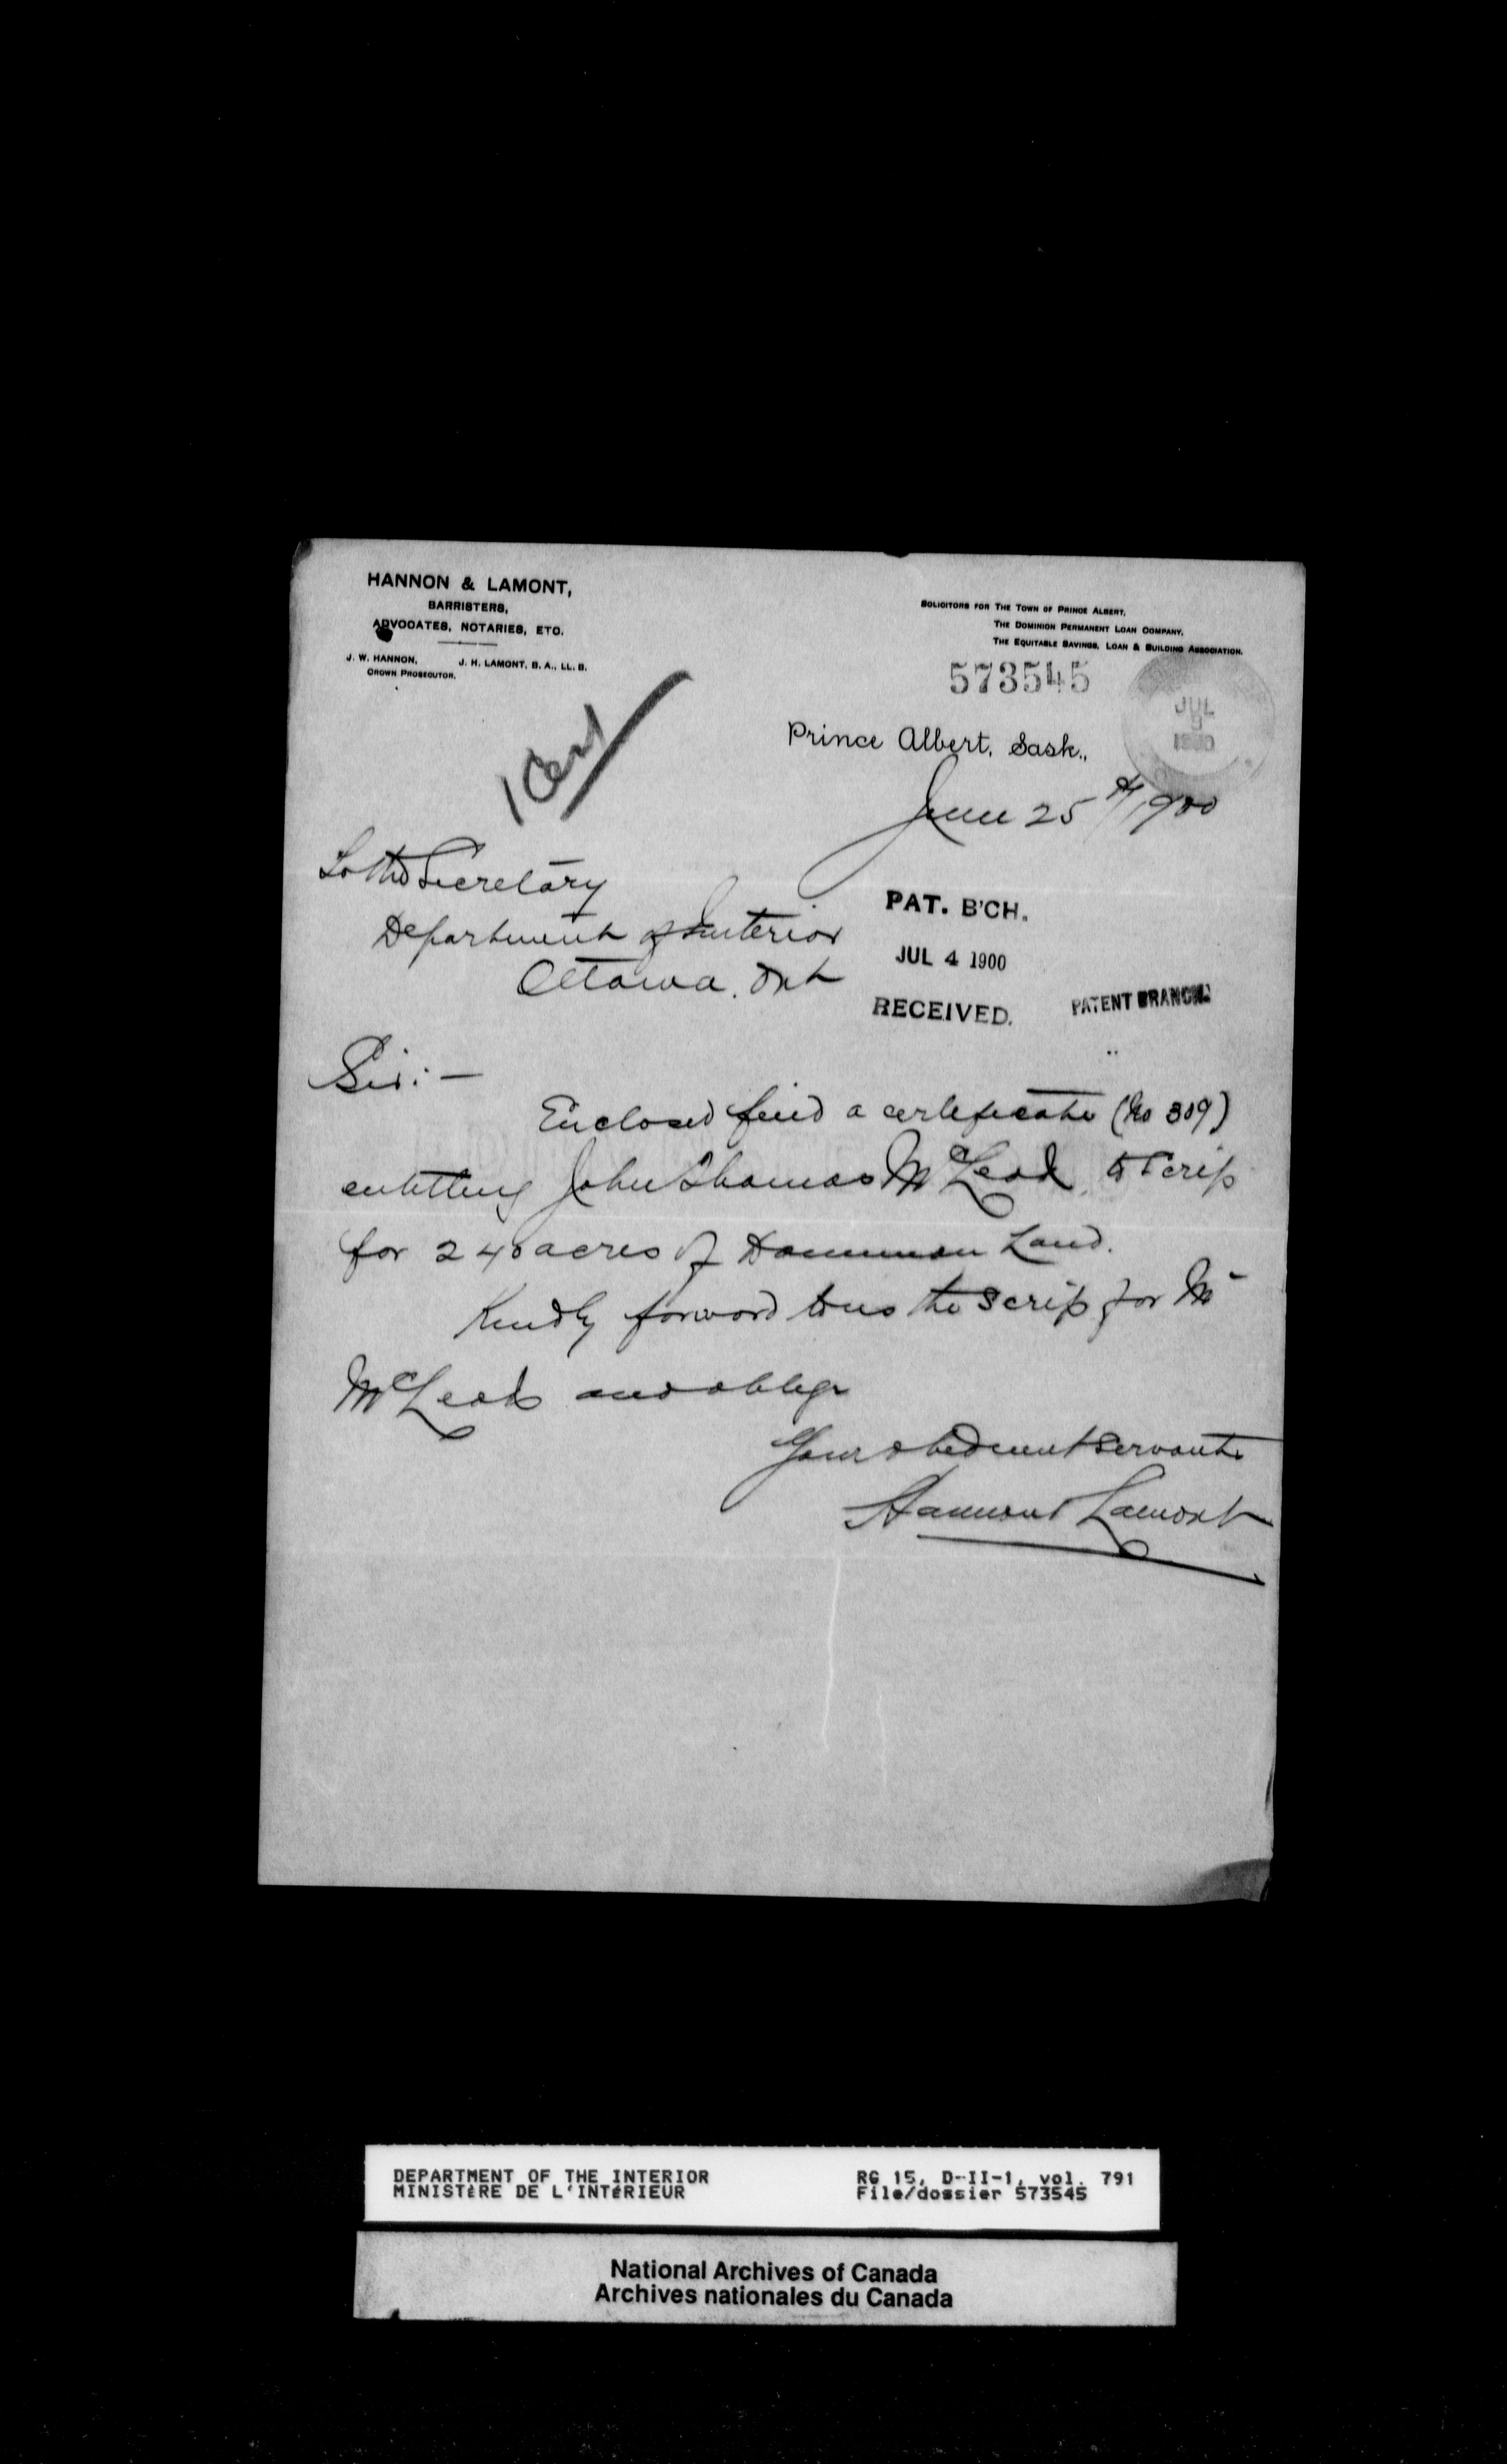 HANNON & LAMONT,
BARRISTERS,
ADVOCATES, NOTARIES, ETC.
J. W. HANNON, J. H. LAMONT, B. A., LL. B.
CROWN PROSECUTOR.
SOLICITORS FOR THE TOWN OF PRINCE ALBERT,
THE DOMINION PERMANENT LOAN COMPANY,
THE EQUITABLE SAVINGS, LOAN & BUILDING ASSOCIATION.
573545
JUL
1900
Prince Albert, Sask.,
1 Cert
June 25th 1900
To the Secretary
Department of Interior
Ottawa. Ont
PAT. B'CH.
JUL 4 1900
RECEIVED.
PATENT BRANCH.
Sir:—
Enclosed find a certificate (No 309)
entitling John Thomas McLeod to Scrip
for 240 acres of Dominion Land.
Kindly forward to us the Scrip for Mr
McLeod and oblige
Your obedient servants
Hannon & Lamont
DEPARTMENT OF THE INTERIOR
MINISTèRE DE L'INTéRIEUR
RG 15, D-II-1, vol. 791
File/dossier 573545
National Archives of Canada
Archives nationales du Canada